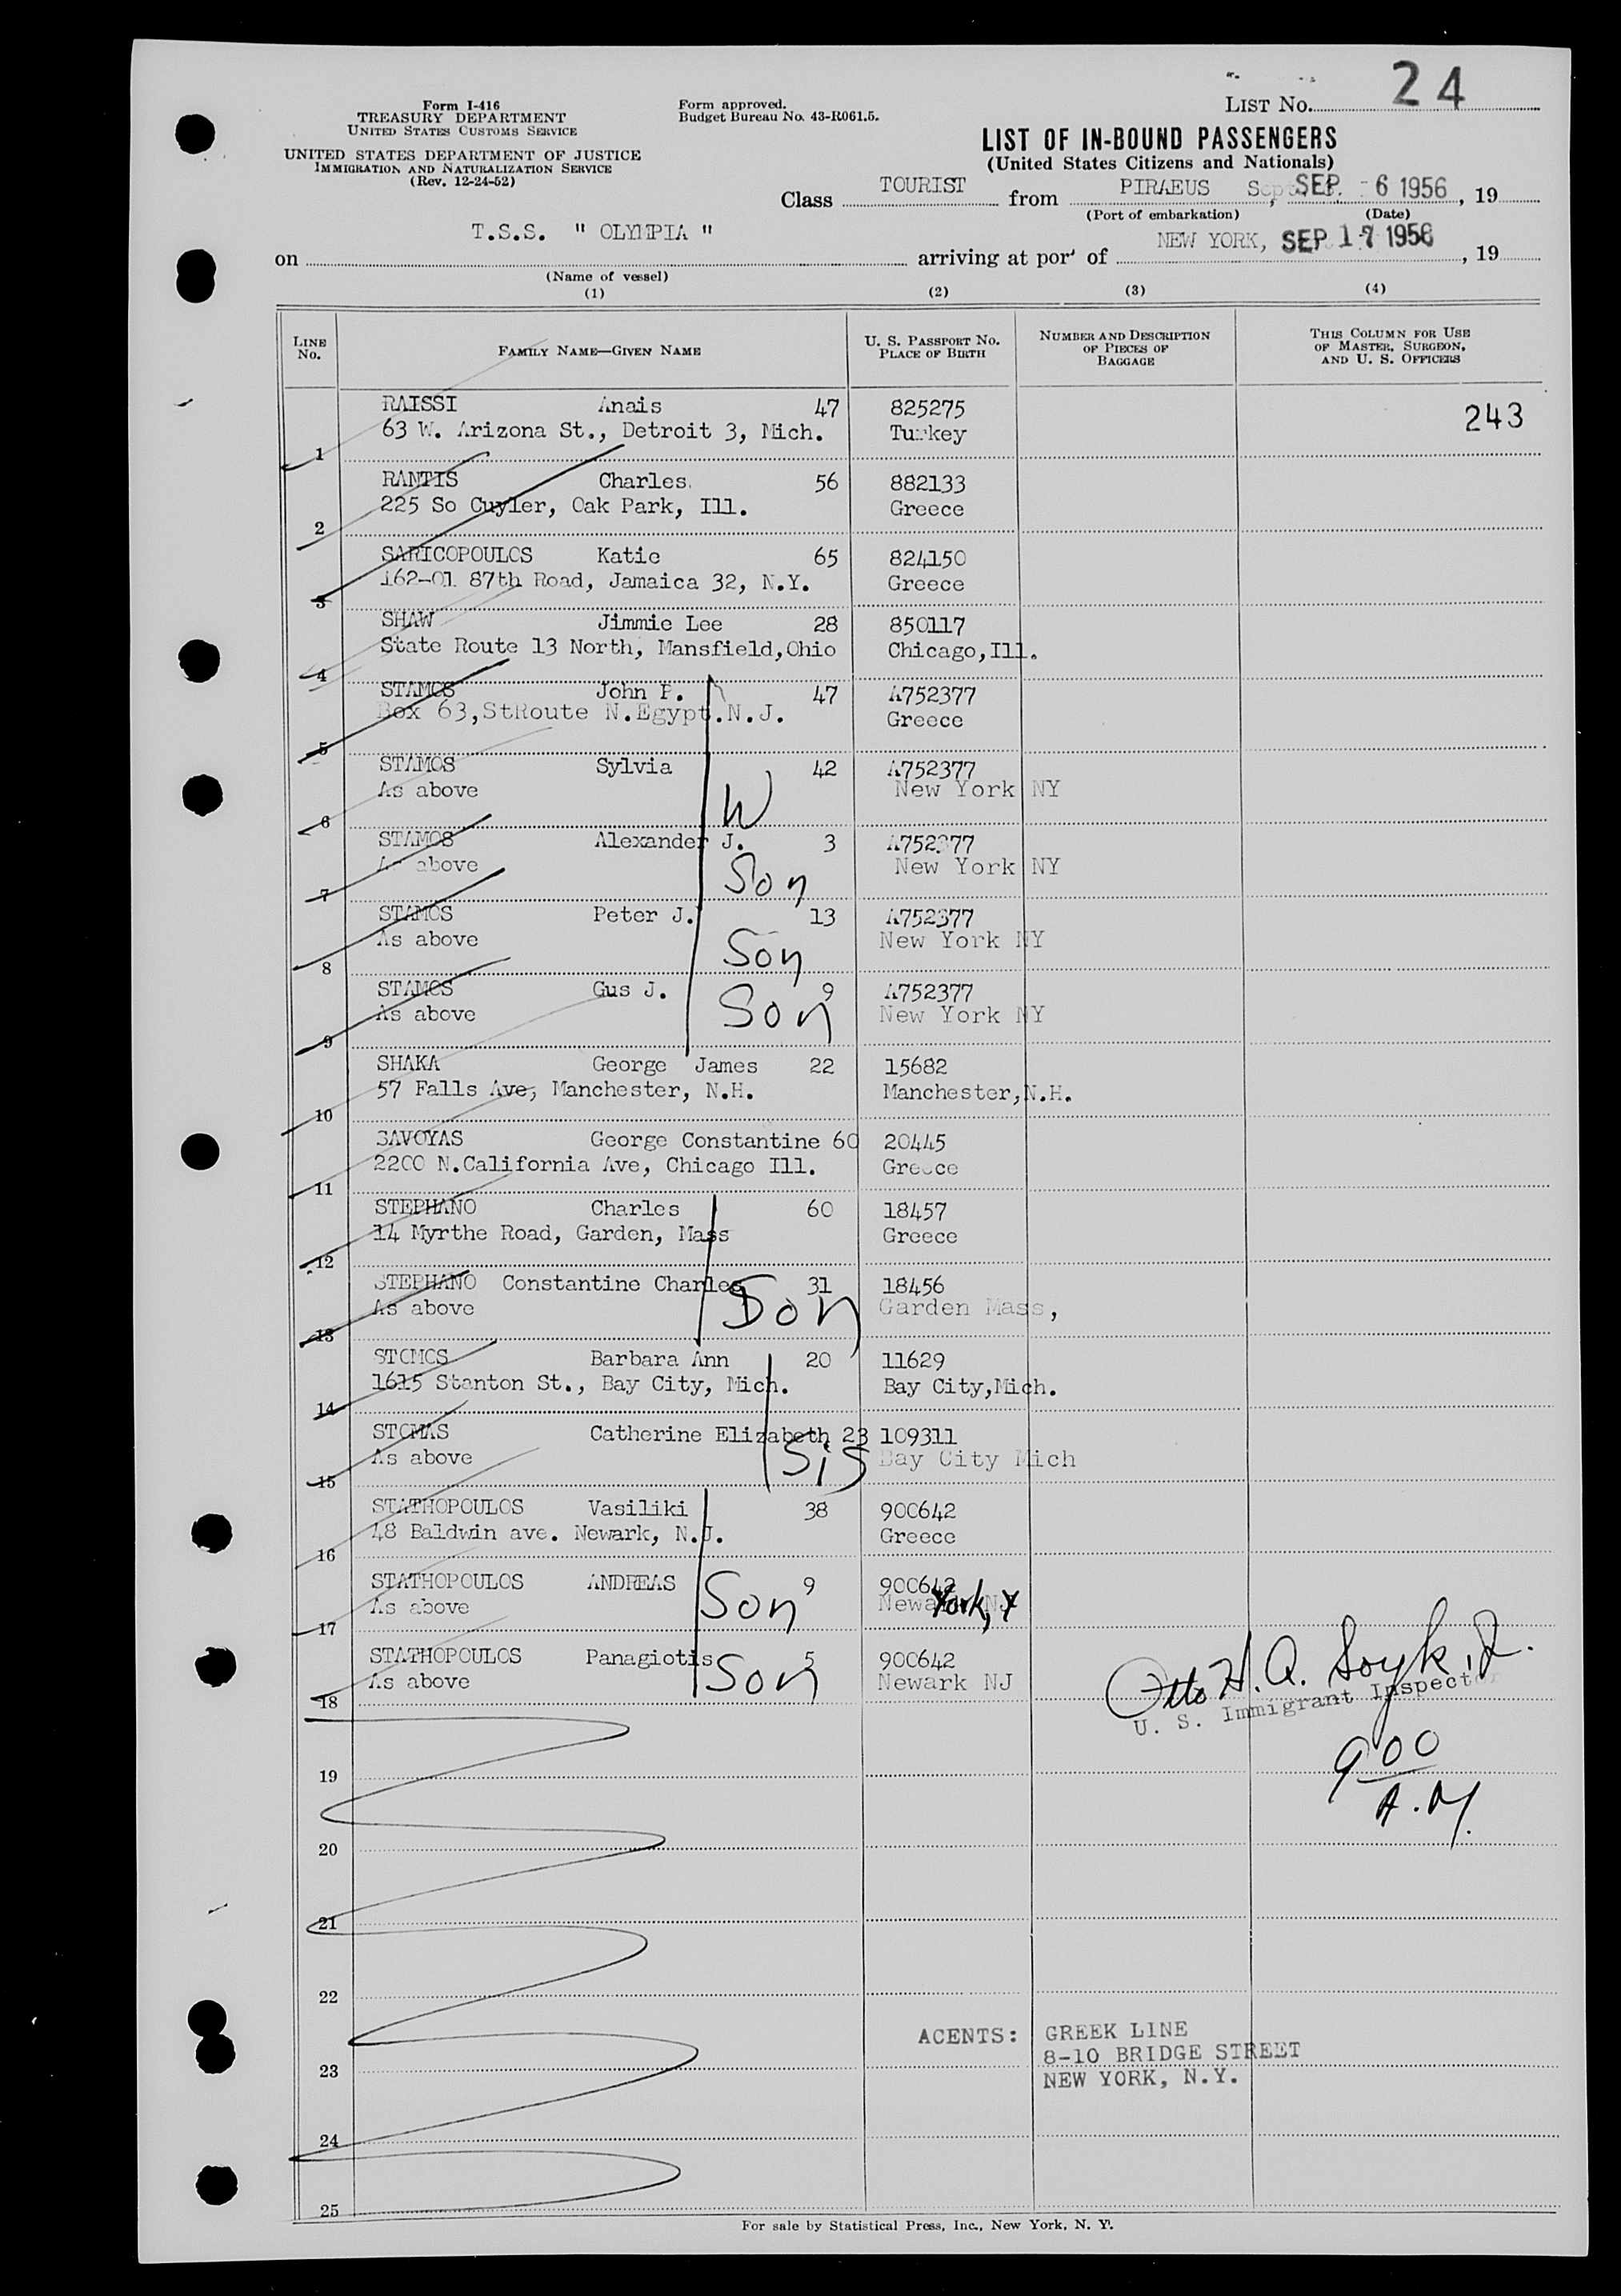 LIST No. 24
Form I-416
TREASURY DEPARTMENT
UNITED STATES CUSTOMS SERVICE
UNITED STATES DEPARTMENT OF JUSTICE
IMMIGRATION AND NATURALIZATION SERVICE
(Rev. 12-24-52)
Form approved.
Budget Bureau No. 43-R061.5.
LIST OF IN-BOUND PASSENGERS
(United States Citizens and Nationals)
Class TOURIST from PIRAEUS, SEP. 6 1956, 19
(Port of embarkation) (Date)
on T.S.S. " OLYMPIA " arriving at port of NEW YORK, SEP 17 1956, 19
(Name of vessel)
(1) (2) (3) (4)
LINE No.
FAMILY NAME—GIVEN NAME
U. S. PASSPORT No.
PLACE OF BIRTH
NUMBER AND DESCRIPTION
OF PIECES OF
BAGGAGE
THIS COLUMN FOR USE
OF MASTER, SURGEON,
AND U. S. OFFICERS
RAISSI Anais 47 825275 243
1 63 W. Arizona St., Detroit 3, Mich. Turkey
RANTIS Charles. 56 882133
2 225 So Cuyler, Oak Park, Ill. Greece
SARICOPOULOS Katie 65 824150
3 162-01 87th Road, Jamaica 32, N.Y. Greece
SHAW Jimmie Lee 28 850117
4 State Route 13 North, Mansfield,Ohio Chicago,Ill.
STAMOS John P. 47 A752377
5 Box 63,StRoute N.Egypt.N.J. Greece
STAMOS Sylvia 42 A752377
6 As above W New York NY
STAMOS Alexander J. 3 A752377
7 As above Son New York NY
STAMOS Peter J. 13 A752377
8 As above Son New York NY
STAMOS Gus J. 9 A752377
9 As above Son New York NY
SHAKA George James 22 15682
10 57 Falls Ave, Manchester, N.H. Manchester,N.H.
SAVOYAS George Constantine 60 20445
11 2200 N.California Ave, Chicago Ill. Greece
STEPHANO Charles 60 18457
12 14 Myrthe Road, Garden, Mass Greece
STEPHANO Constantine Charles 31 18456
13 As above Son Garden Mass,
STOMOS Barbara Ann 20 11629
14 1615 Stanton St., Bay City, Mich. Bay City,Mich.
STOMAS Catherine Elizabeth 23 109311
15 As above Sis Bay City Mich
STATHOPOULOS Vasiliki 38 900642
16 48 Baldwin ave. Newark, N.J. Greece
STATHOPOULOS ANDREAS 9 900642
17 As above Son New York, Y
STATHOPOULOS Panagiotis 5 900642
18 As above Son Newark NJ
Otto H. A. Soyk, Jr.
U. S. Immigrant Inspector
9 00
A.M.
19
20
21
22
ACENTS: GREEK LINE
8-10 BRIDGE STREET
23
NEW YORK, N.Y.
24
25
For sale by Statistical Press, Inc., New York, N. Y.